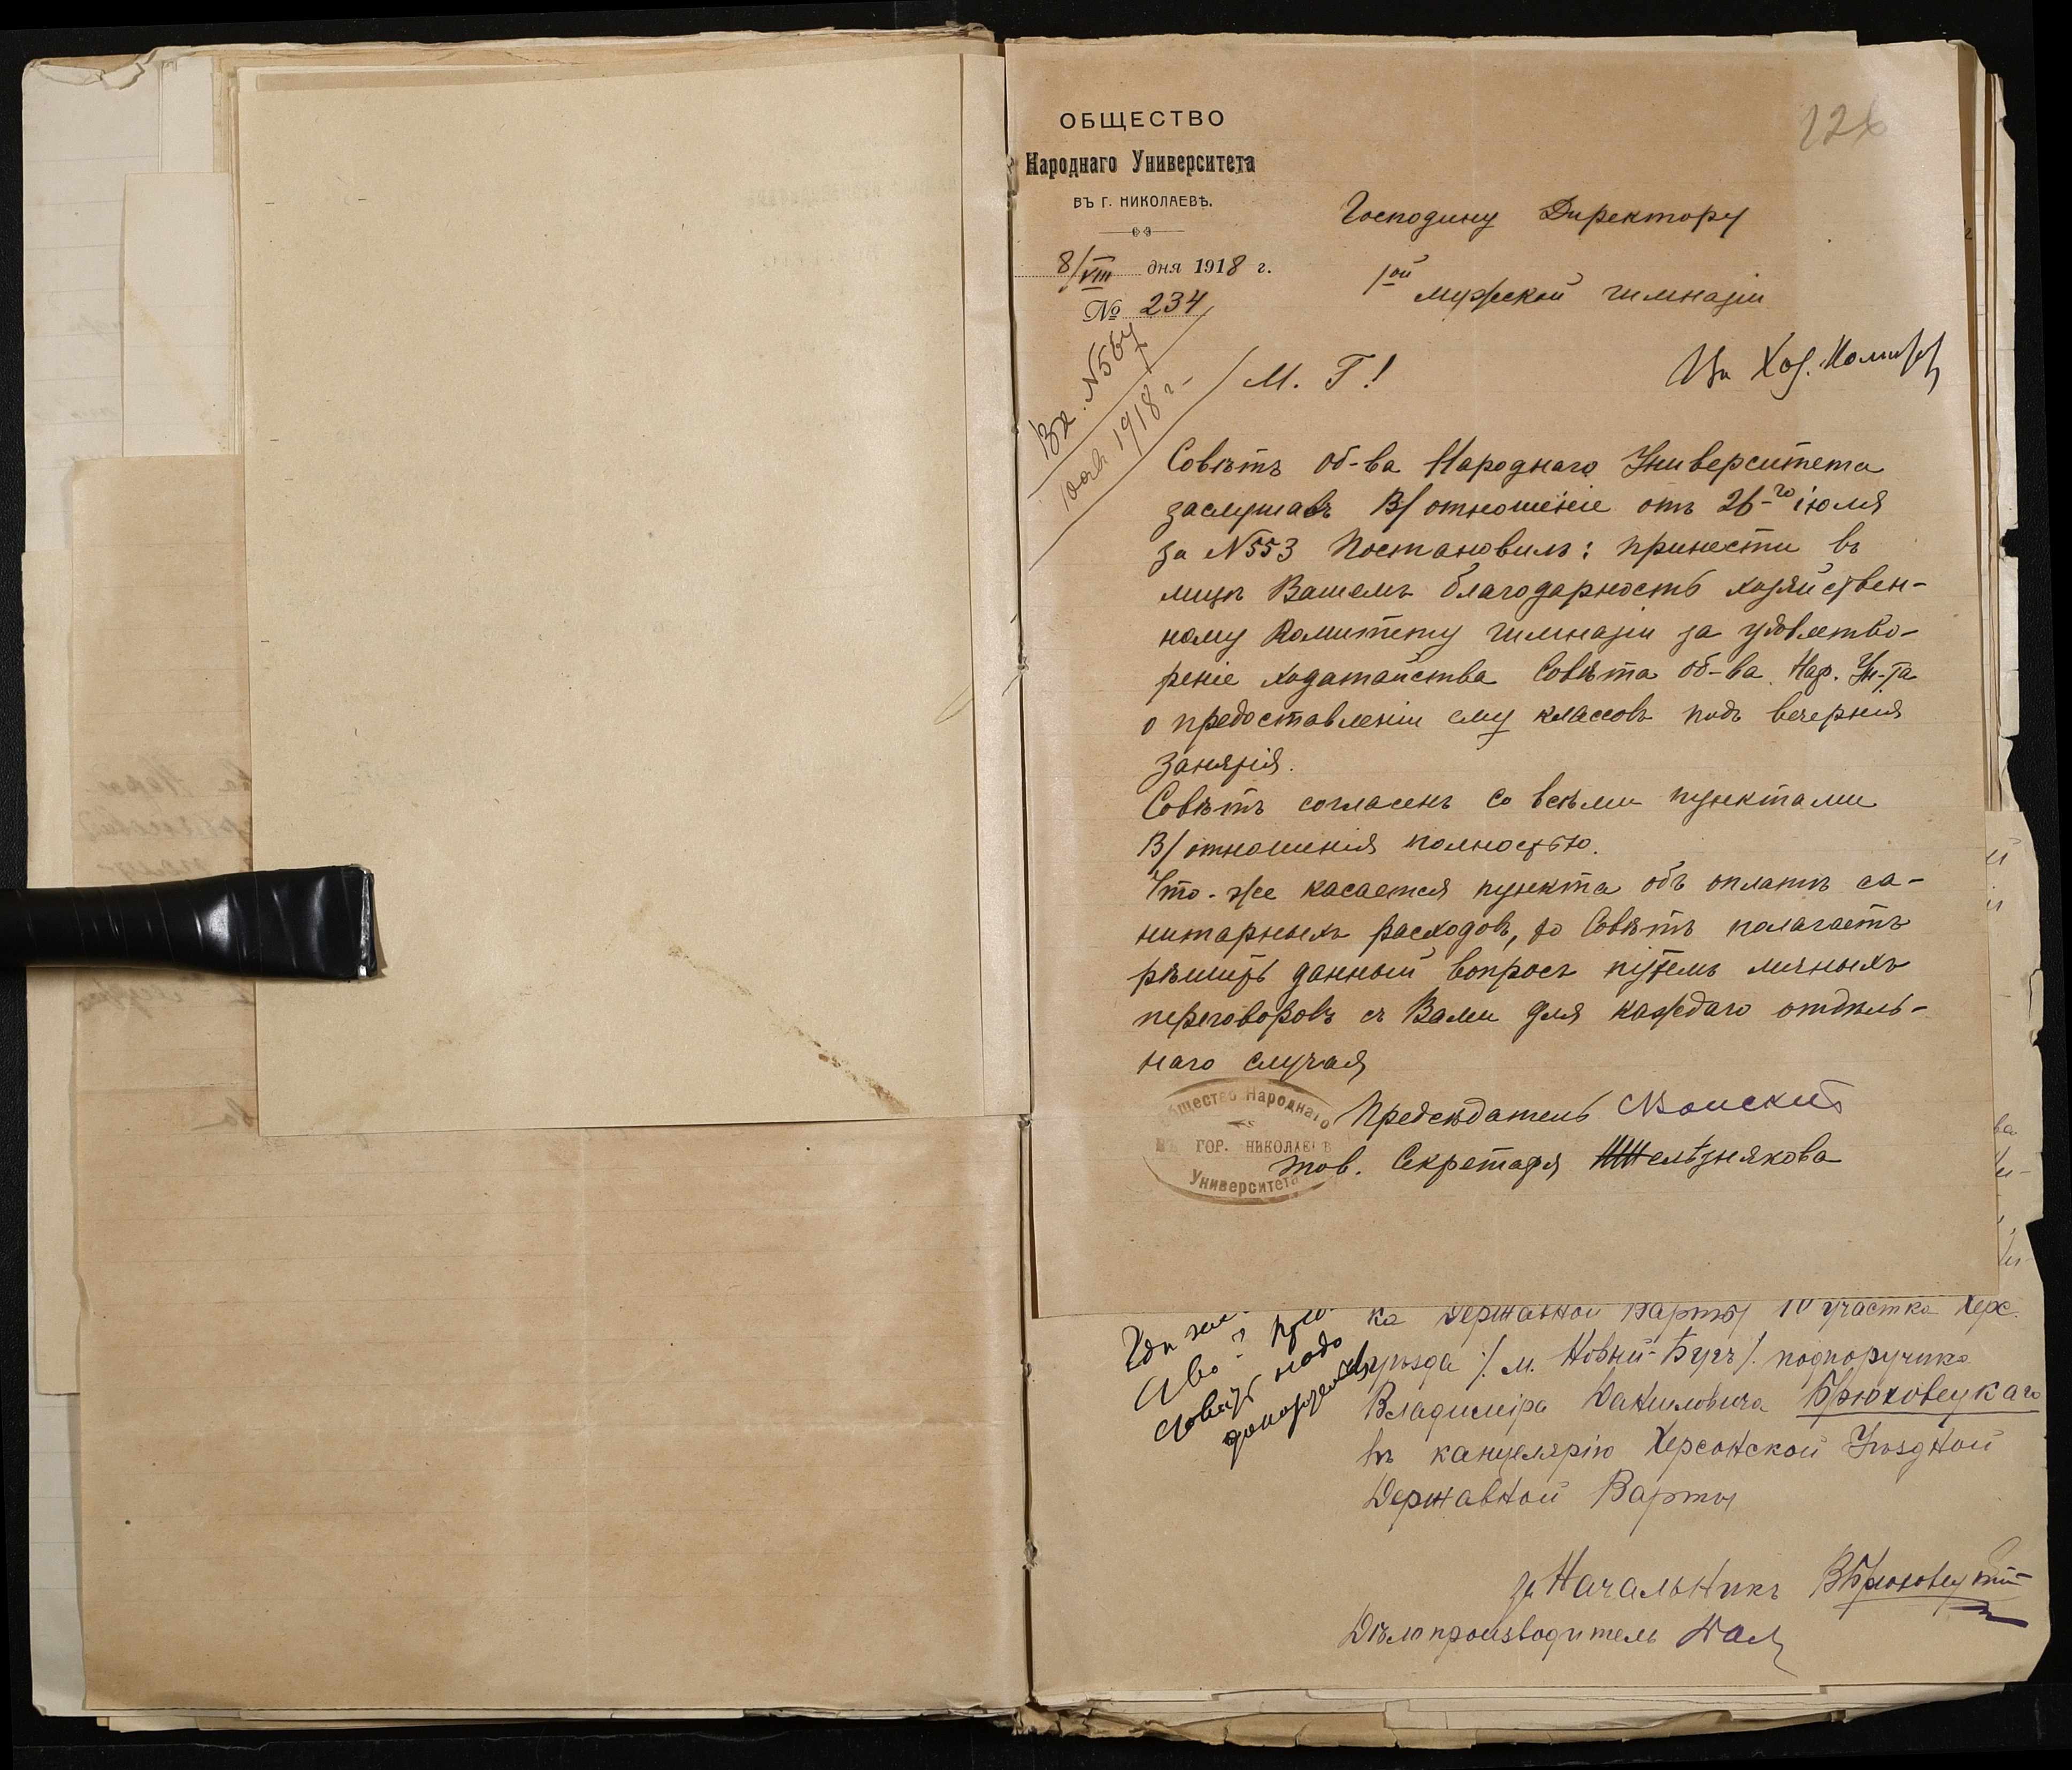 126
ОБЩЕСТВО
Народнаго Университета
ВЪ Г. НИКОЛАЕВѢ.
8/VIII дня 1918 г.
№ 234
Вх. N 567
1918 г.
Господину Директору
1ой мужской гимназіи
М. Г!
Въ Хоз.
Совѣтъ об-ва Народнаго Университета
заслушавъ В/отношеніе отъ 26-го іюля
за N553 постановилъ: принести въ
лицѣ Вашемъ благодарность хозяйствен-
ному Комитету гимназіи за удовлетво-
реніе ходатайства Совѣта об-ва Нар. Ун-та
о предоставленіи ему классовъ подъ вечернія
занятія.
Совѣтъ согласенъ со всѣми пунктами
В/отношенія полностью.
Что-же касается пункта объ оплатѣ са-
нитарныхъ расходов, то Совѣтъ полагаетъ
рѣшить данный вопросъ путемъ личныхъ
переговоровъ съ Вами для каждаго отдѣль-
наго случая
Предсѣдатель
тов. Секретаря Желѣзнякова
Общество Народнаго
ВЪ ГОР. НИКОЛАЕВѢ
Университета
ка Державной Варты IV участка Херс.
уѣзда /м. Новый-Бугъ/. подпоручика
Владиміра Даниловича Брюховецкаго
въ канцелярію Херсонской Уѣздной
Державной Варты
за Начальникъ ВБрюховецкій
Дѣлопроизводитель
надо